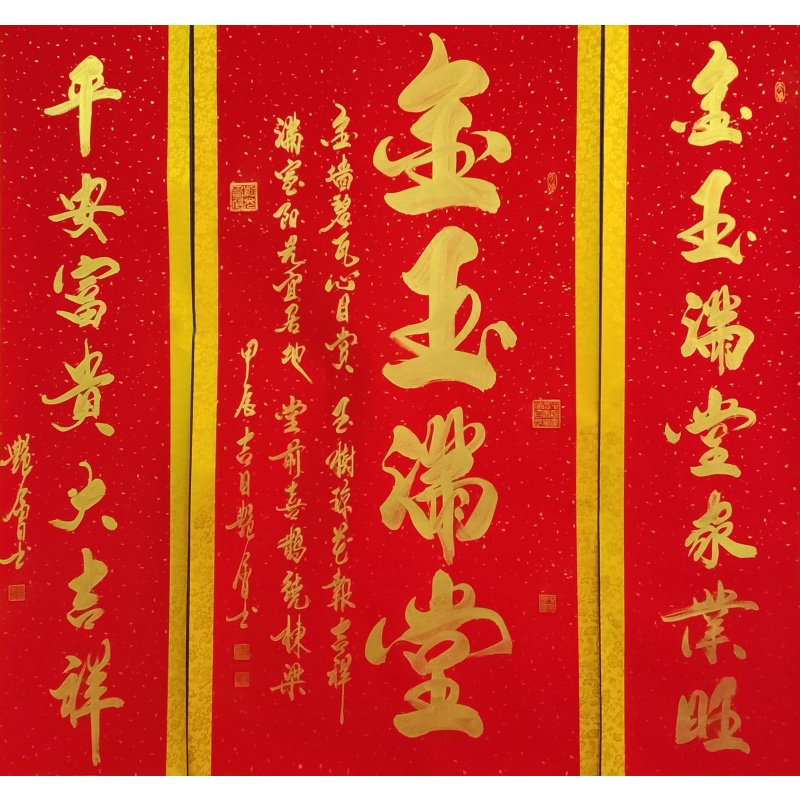 金玉满堂家業旺
金玉满堂
金墙碧瓦心目赏 玉樹琼花報吉祥
满室阳光宜居地 堂前喜鹊绕棟梁
甲辰吉日艷屠书
平安富貴大吉祥